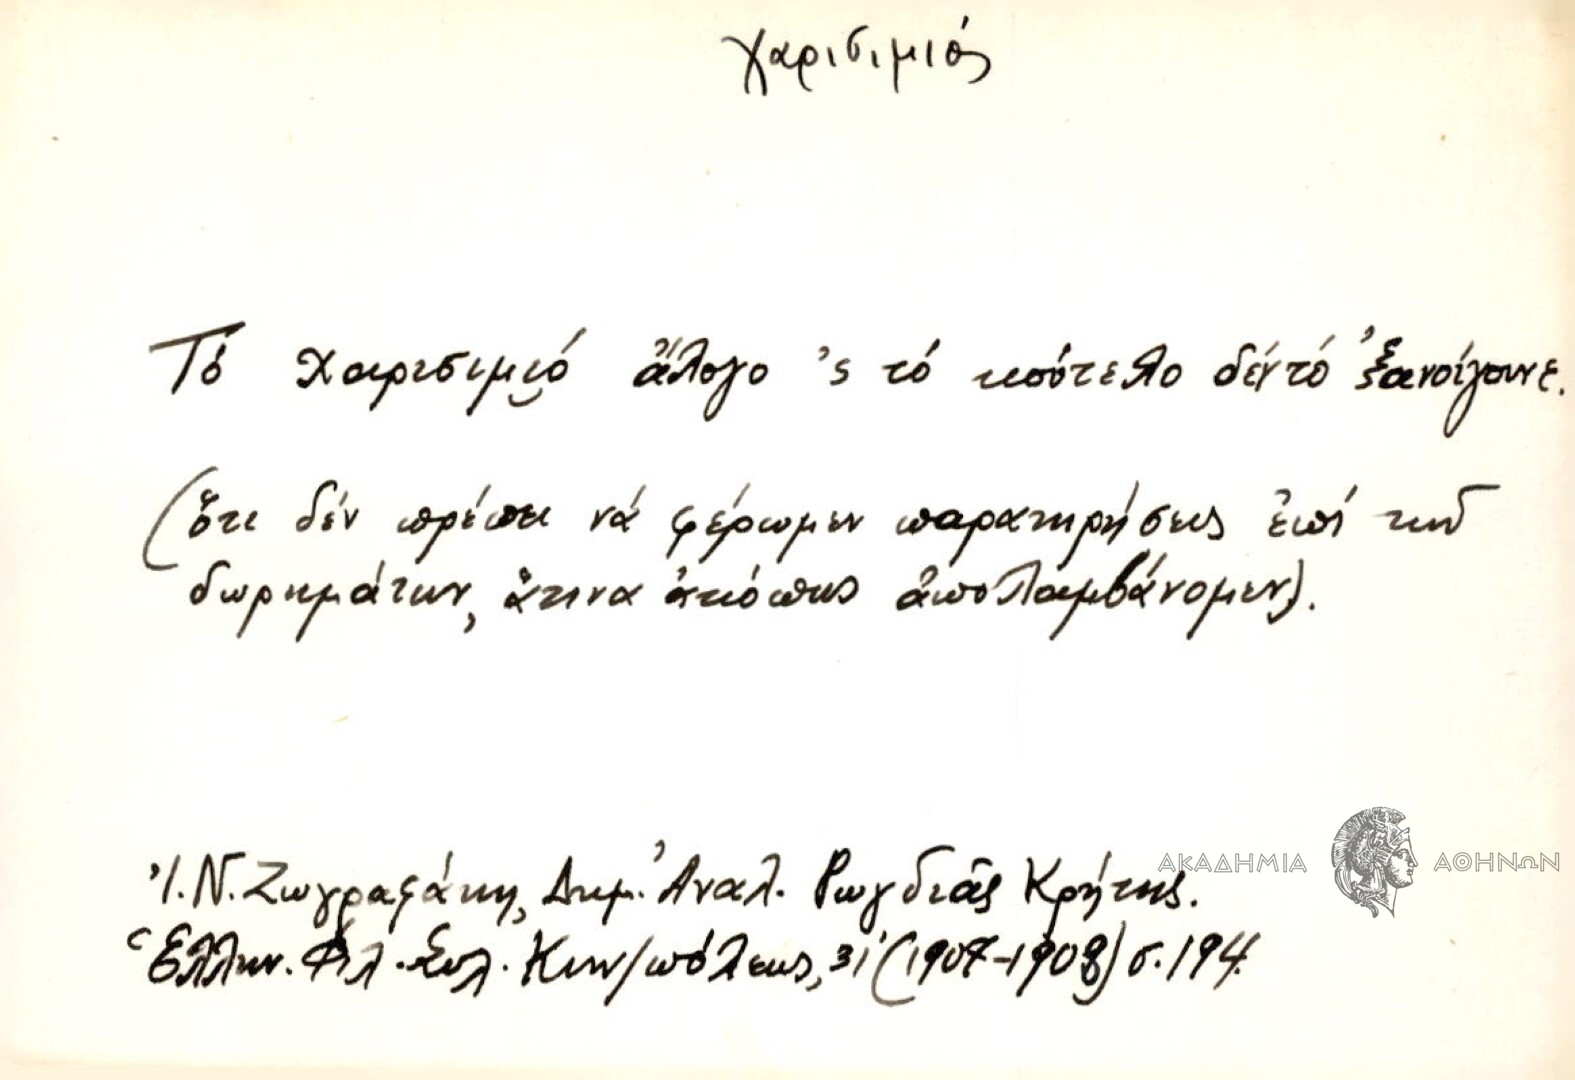 χαρισιμιός
Τό χαρισιμιό ἄλογο 'ς τό κούτελο δέν τό ξανοίγουνε.
(ὅτι δέν πρέπει νά φέρωμεν παρατηρήσεις ἐπί τῶν
δωρημάτων, ἅτινα ἀκόπως ἀπολαμβάνομεν).
Ἰ. Ν. Ζωγραφάκη, Δημ. Ἀναλ. Ρωγδιᾶς Κρήτης.
Ἑλλην. Φιλ. Συλ. Κων/πόλεως, 31 (1907-1908) σ. 194.
ΑΚΑΔΗΜΙΑ ΑΘΗΝΩΝ